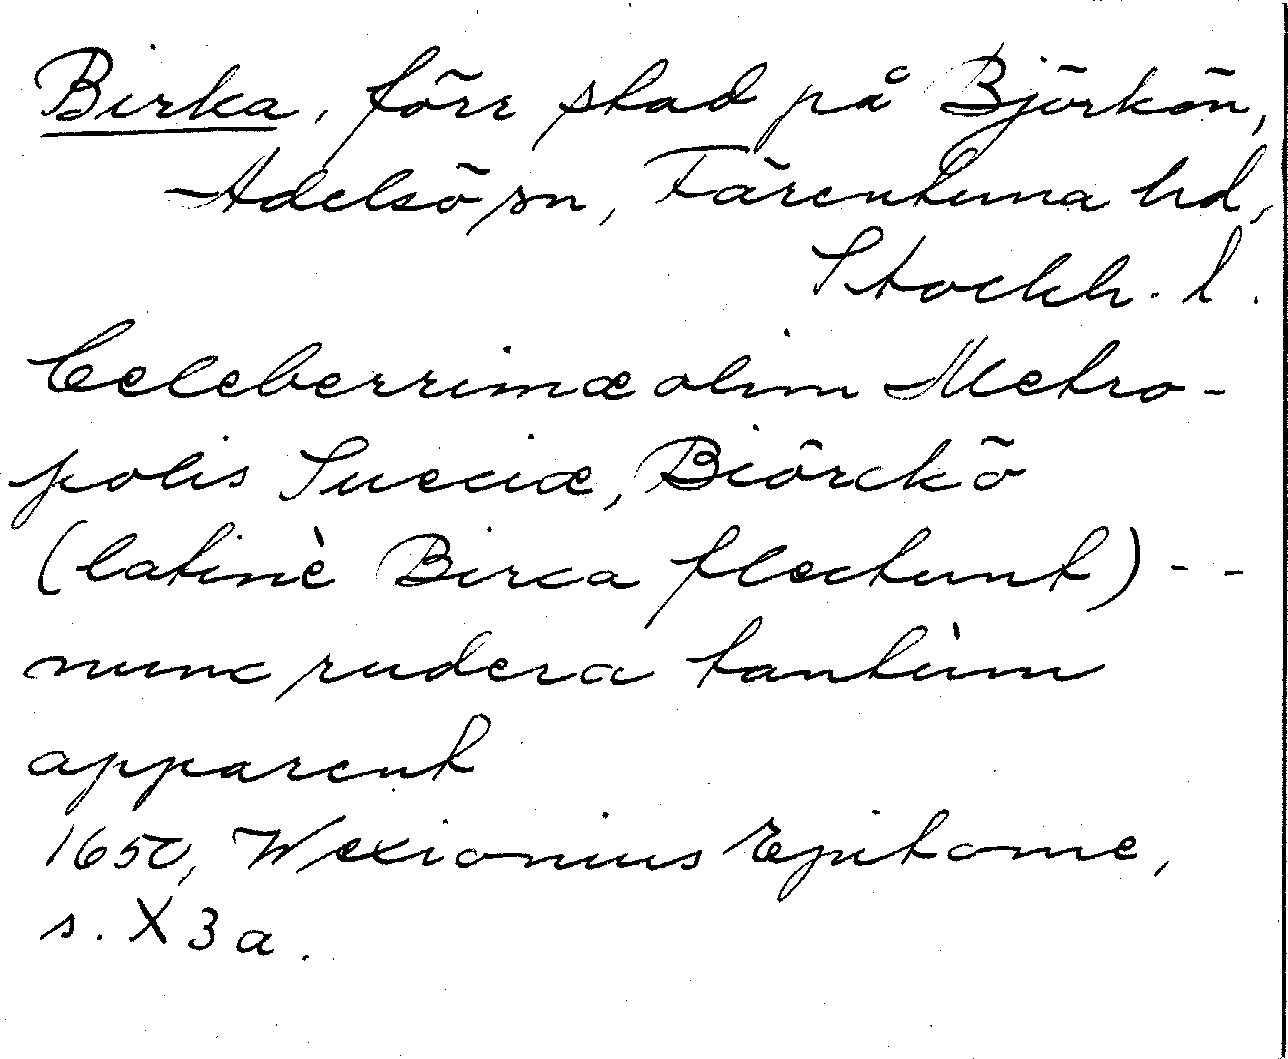 Birka, förr stad på Björkön,
Adelsö sn, Färentuna hd,
Stockh. l.
Celeberrimæ olim Metro-
polis Sueciæ, Biörckö
(latinè Birca flectunt) - -
nunc rudera tantùm
apparent
1650, Wexionius Epitome,
s. X 3 a.